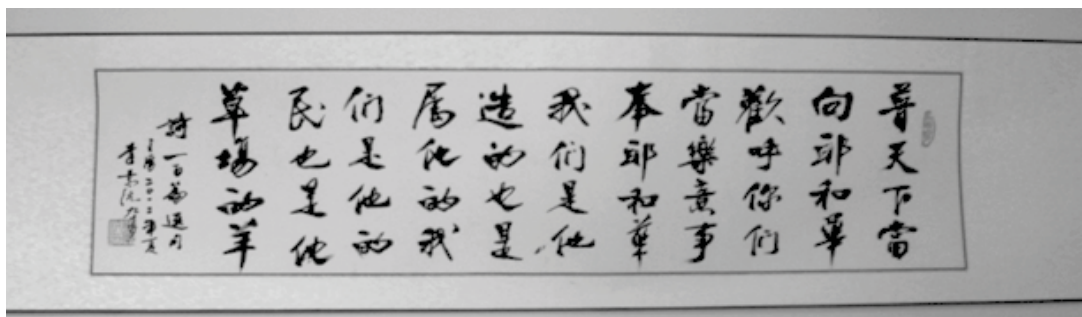 普天下當
向耶和華
歡呼你們
當樂意事
奉耶和華
我们是他
造的也是
属他的我
们是他的
民也是他
草場的羊
詩一百篇選句